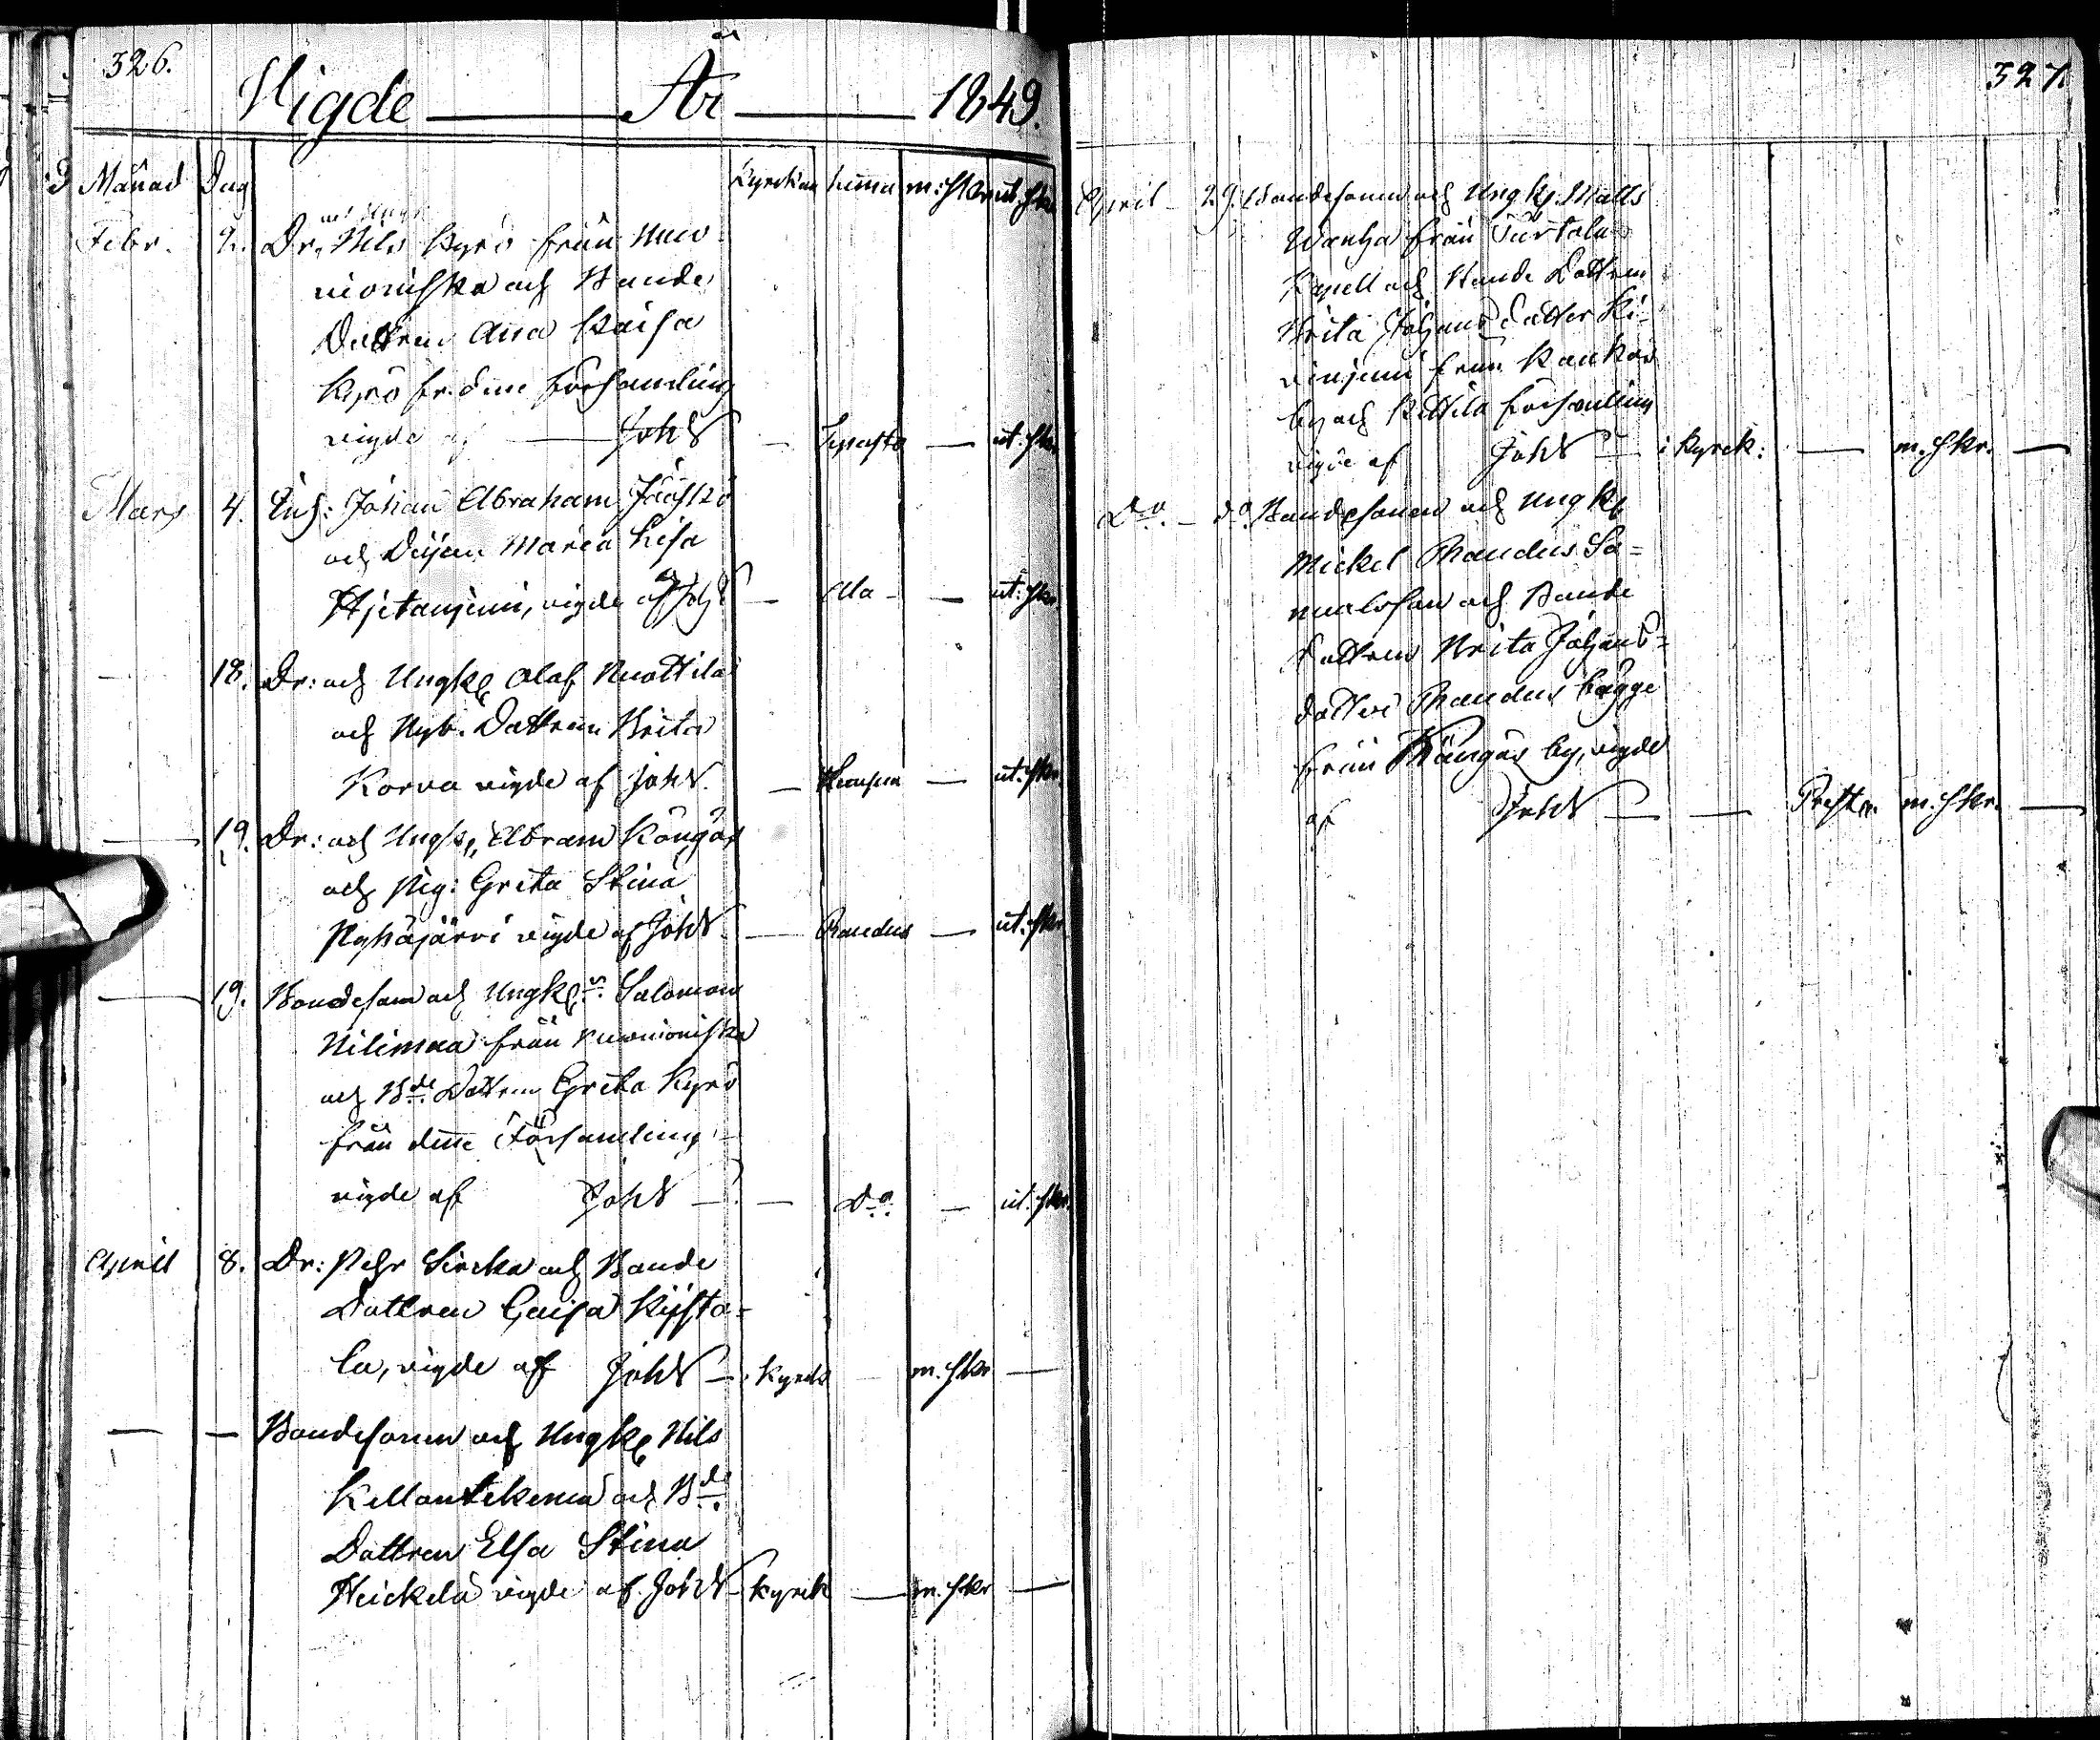 326.
Vigde År 1849.
Månad Dag Kyrckan hemma m: skr ut. skr
Febr. 2. Dr. Nils Kyrö från Muo-
nioniska och Bonde
Dottren Anna Kaisa
Kyrö fr. denne Församling
vigde af Joh S — — ut. skr
Mars 4. Inh: Johan Abraham
och Pigan Maria Lisa
Hjetanjemi, vigde af Joh S — — ut: skr
— 18. Dr: och Ungk. Olof Nuottila
och Nyb. Dottren Brita
Korva vigde af Joh S. — — ut. skr.
— 19. Dr: och Ungk. Abram Kängäs
och Pig: Greta Stina
Pyhäjärvi vigde af Joh S. — Raudus — ut. skr
— 19. Bondeson och Ungk. Salomon
Nilimaa från Muonioniska
och Bde. Dottren Greta Kyrö
från denne Församling
vigde af Joh S — — Do. — ut. skr.
April 8. Dr: Pehr Sircka och Bonde
Dottren Caisa Kijsta-
la, vigde af Joh S — i Kyrck m. skr —
— — Bondesonen och Ungk. Nils
Kellontekema och Bde.
Dottren Elsa Stina
Heickelä vigde af Joh S — Kyrck — m. skr —
327.
April — 29. Bondesonen och Ungk. Matts
Wanha från Turtola
Kapell och Bonde Dottren
Brita Johans Dotter Ki-
vinjemi från
by och Kittilä Församling
vigde af Joh S — i Kyrck: — m. skr. —
Do. — do. Bondesonen och Ungk.
Mickel Raudus Sa=
muelsson och Bonde
dottren Brita Johans=
dotter Raudus bägge
från Kängäs by, vigde
af Joh S — — Prestg. m. skr. —